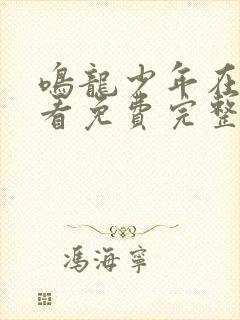 鳴龍少年在
看免費完整
馮海寧